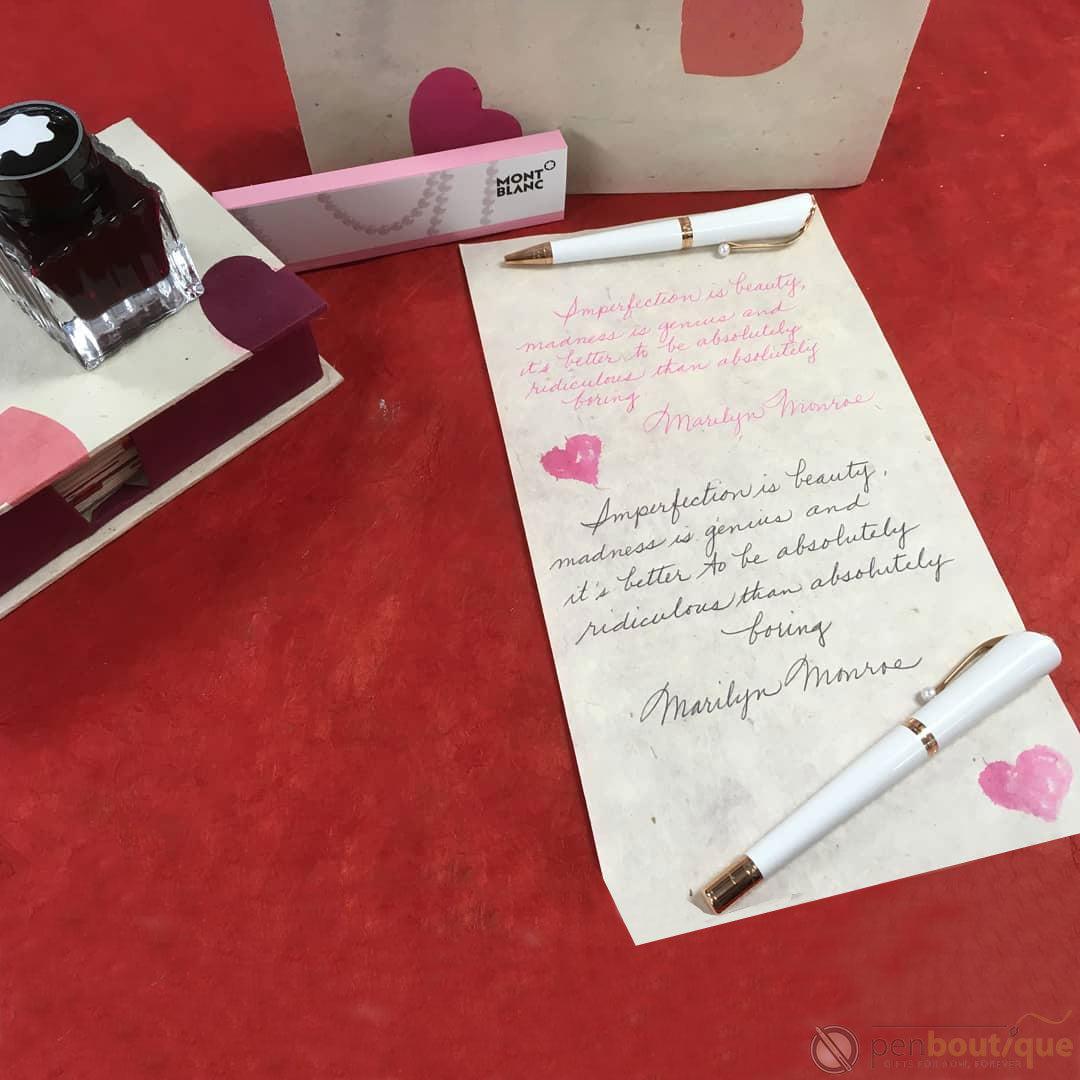 MONT
BLANC
Imperfection is beauty,
madness is genius and
it's better to be absolutely
ridiculous than absolutely
boring
Marilyn Monroe
Imperfection is beauty,
madness is genius and
it's better to be absolutely
ridiculous than absolutely
boring
Marilyn Monroe
penboutique
GIFTS FOR NOW, FOREVER